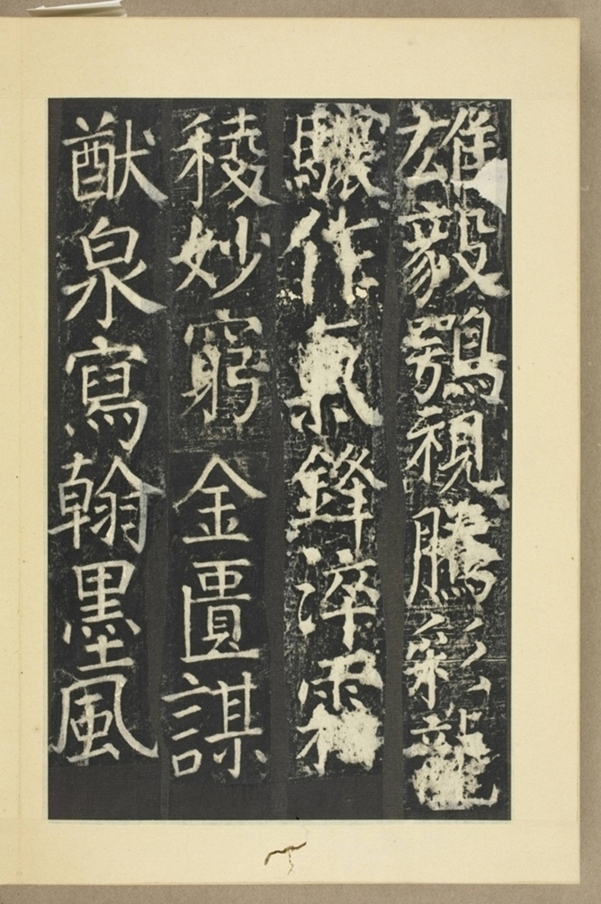 雄毅鶚視騰彩龍
驤作氣鋒淬霜
稜妙窮金匱謀
猷泉寫翰墨風